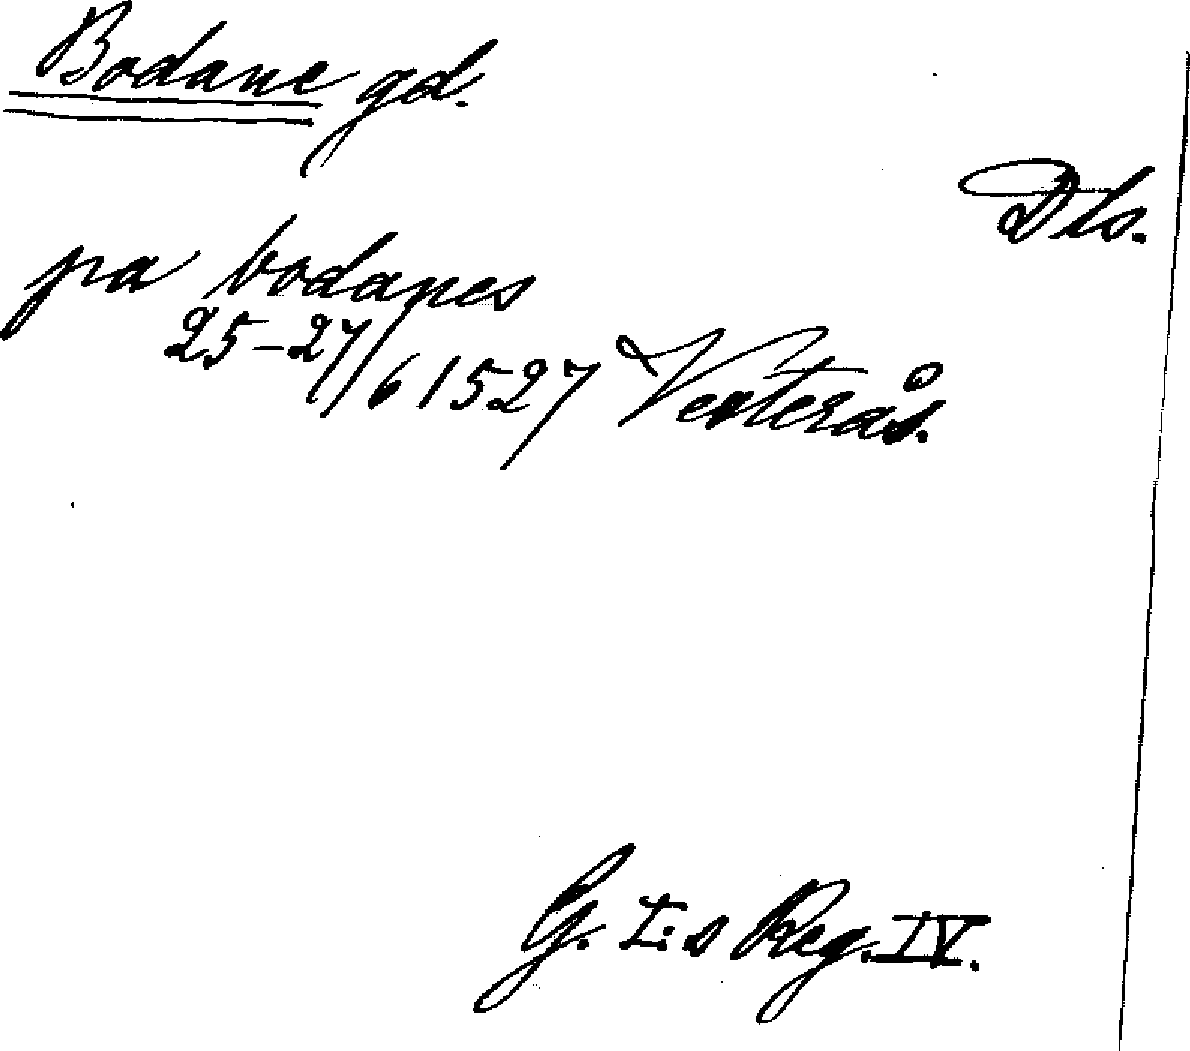 Bodane gd.
Dls.
pa bodanes
25-27/6 1527 Vesterås.
G. I:s Reg. IV.